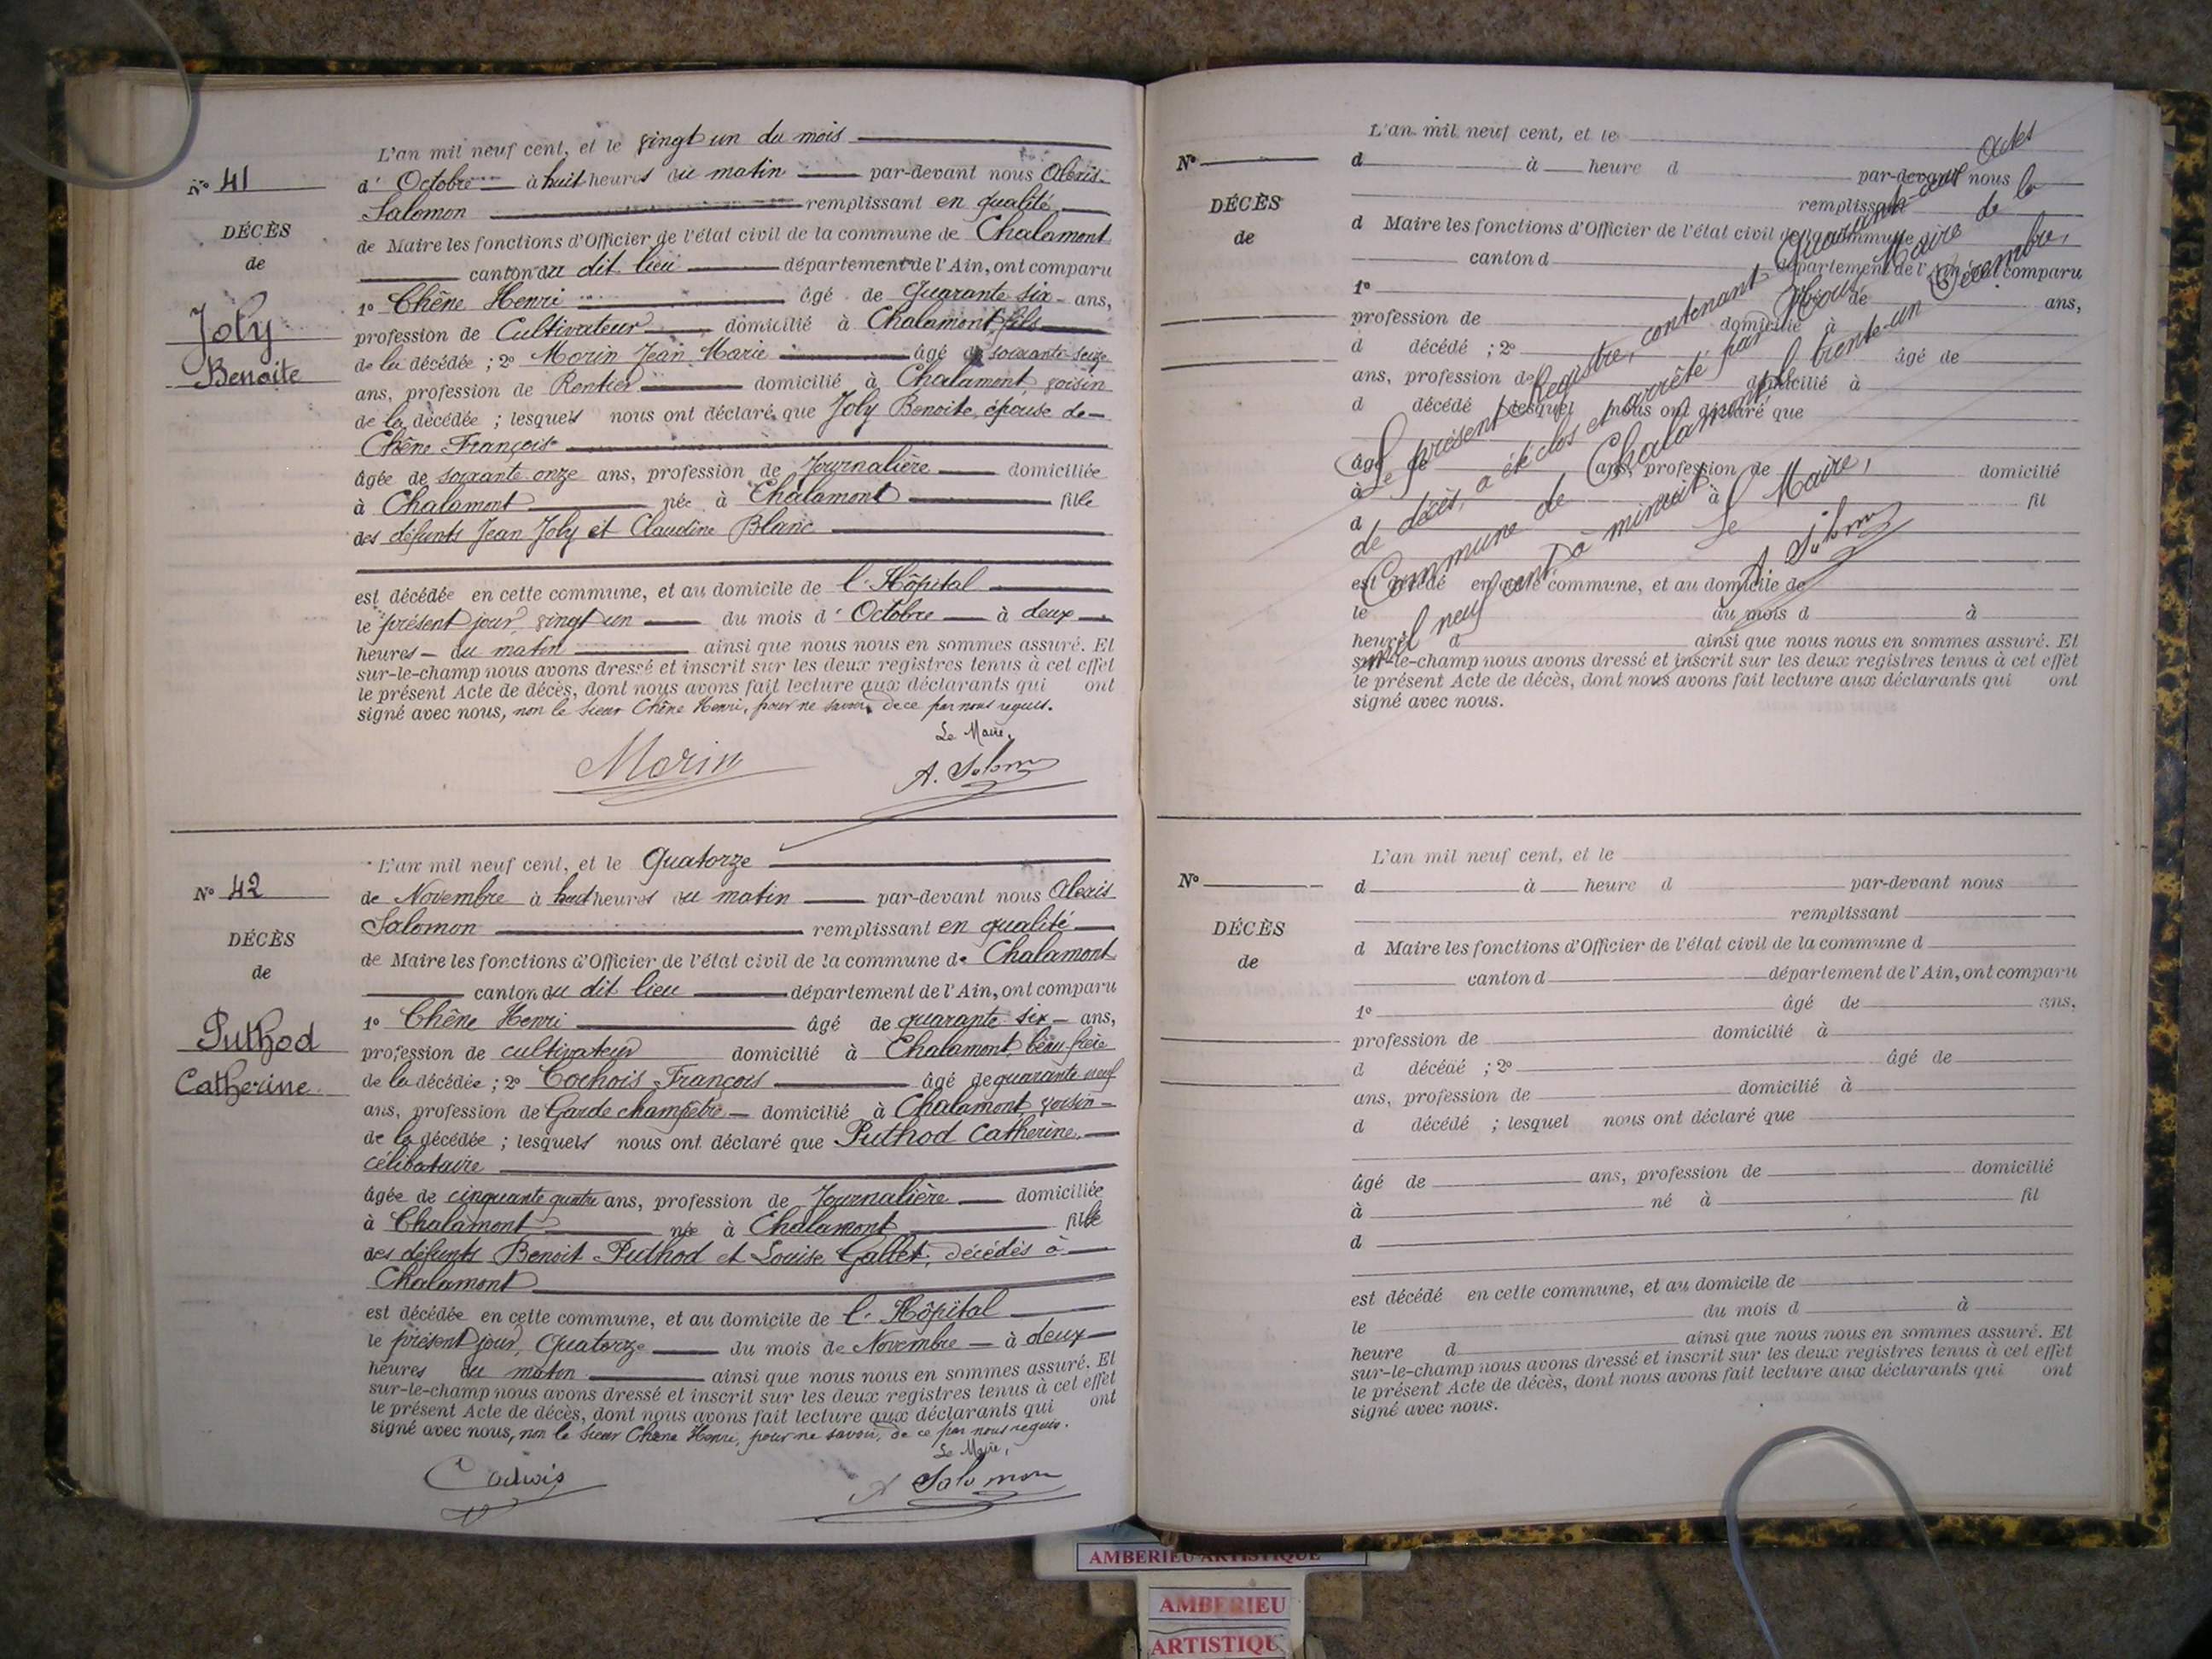 L'an mil neuf cent, et le vingt un du mois
N° 41
d' Octobre à huit heures du matin par-devant nous Alexis
Salomon remplissant en qualité
DÉCÈS
de Maire les fonctions d'Officier de l'état civil de la commune de Chalamont
de
canton du dit lieu département de l'Ain, ont comparu
1° Chêne Henri âgé de Quarante six ans,
Joly
profession de Cultivateur domicilié à Chalamont fils
de la décédée ; 2° Morin Jean Marie âgé de soixante seize
Benoite
ans, profession de Rentier domicilié à Chalamont voisin
de la décédée ; lesquels nous ont déclaré que Joly Benoite, épouse de
Chêne François
âgée de soixante onze ans, profession de Journalière domiciliée
à Chalamont née à Chalamont fille
des défunts Jean Joly et Claudine Blanc
est décédée en cette commune, et au domicile de l'Hôpital
le présent jour, vingt un du mois d' Octobre à deux
heures du matin ainsi que nous nous en sommes assuré. Et
sur-le-champ nous avons dressé et inscrit sur les deux registres tenus à cet effet
le présent Acte de décès, dont nous avons fait lecture aux déclarants qui ont
signé avec nous, non le sieur Chêne Henri, pour ne savoir, de ce par nous requis.
Le Maire,
Morin A. Salomon
L'an mil neuf cent, et le Quatorze
N° 42
de Novembre à huit heures du matin par-devant nous Alexis
Salomon remplissant en qualité
DÉCÈS
de Maire les fonctions d'Officier de l'état civil de la commune de Chalamont
de
canton du dit lieu département de l'Ain, ont comparu
1° Chêne Henri âgé de quarante six ans,
Puthod
profession de cultivateur domicilié à Chalamont, beau-frère
Catherine
de la décédée ; 2° Cochois François âgé de quarante neuf
ans, profession de Garde champêtre domicilié à Chalamont voisin
de la décédée ; lesquels nous ont déclaré que Puthod Catherine,
célibataire
âgée de cinquante quatre ans, profession de Journalière domiciliée
à Chalamont née à Chalamont fille
des défunts Benoit Puthod et Louise Gallet, décédés à
Chalamont
est décédée en cette commune, et au domicile de l'Hôpital
le présent jour, Quatorze du mois de Novembre à deux
heures du matin ainsi que nous nous en sommes assuré. Et
sur-le-champ nous avons dressé et inscrit sur les deux registres tenus à cet effet
le présent Acte de décès, dont nous avons fait lecture aux déclarants qui ont
signé avec nous, non le sieur Chêne Henri, pour ne savoir, de ce par nous requis.
Le Maire,
Cochois A Salomon
L'an mil neuf cent, et le
N°
d à heure d par-devant nous
remplissant
DÉCÈS
d Maire les fonctions d'Officier de l'état civil de la commune d
de
canton d département de l'Ain, ont comparu
1° âgé de ans,
profession de domicilié à
d décédé ; 2° âgé de
ans, profession de domicilié à
d décédé ; lesquel nous ont déclaré que
âgé de ans, profession de domicilié
à né à fil
d
est décédé en cette commune, et au domicile de
le du mois d à
heure d ainsi que nous nous en sommes assuré. Et
sur-le-champ nous avons dressé et inscrit sur les deux registres tenus à cet effet
le présent Acte de décès, dont nous avons fait lecture aux déclarants qui ont
signé avec nous.
Le présent Registre, contenant Quarante-deux actes
de décès, a été clos et arrêté par Nous, Maire de la
Commune de Chalamont, le trente-un Décembre,
mil neuf cent à minuit.
Le Maire,
A. Salomon
L'an mil neuf cent, et le
N°
d à heure d par-devant nous
remplissant
DÉCÈS
d Maire les fonctions d'Officier de l'état civil de la commune d
de
canton d département de l'Ain, ont comparu
1° âgé de ans,
profession de domicilié à
d décédé ; 2° âgé de
ans, profession de domicilié à
d décédé ; lesquel nous ont déclaré que
âgé de ans, profession de domicilié
à né à fil
d
est décédé en cette commune, et au domicile de
le du mois d à
heure d ainsi que nous nous en sommes assuré. Et
sur-le-champ nous avons dressé et inscrit sur les deux registres tenus à cet effet
le présent Acte de décès, dont nous avons fait lecture aux déclarants qui ont
signé avec nous.
AMBERIEU ARTISTIQUE
AMBERIEU
ARTISTIQU